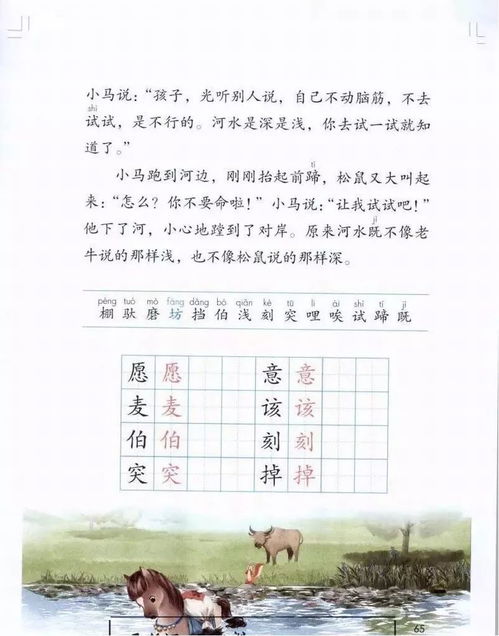 小马说：“孩子，光听别人说，自己不动脑筋，不去
shì
试试，是不行的。河水是深是浅，你去试一试就知
道了。”
tí
小马跑到河边，刚刚抬起前蹄，松鼠又大叫起
来：“怎么？你不要命啦！”小马说：“让我试试吧！”
jì
他下了河，小心地蹚到了对岸。原来河水既不像老
牛说的那样浅，也不像松鼠说的那样深。
péng tuó mò fāng dǎng bó qiǎn kè tū li ài shì tí jì
棚 驮 磨 坊 挡 伯 浅 刻 突 哩 唉 试 蹄 既
愿 愿 意 意
麦 麦 该 该
伯 伯 刻 刻
突 突 掉 掉
65